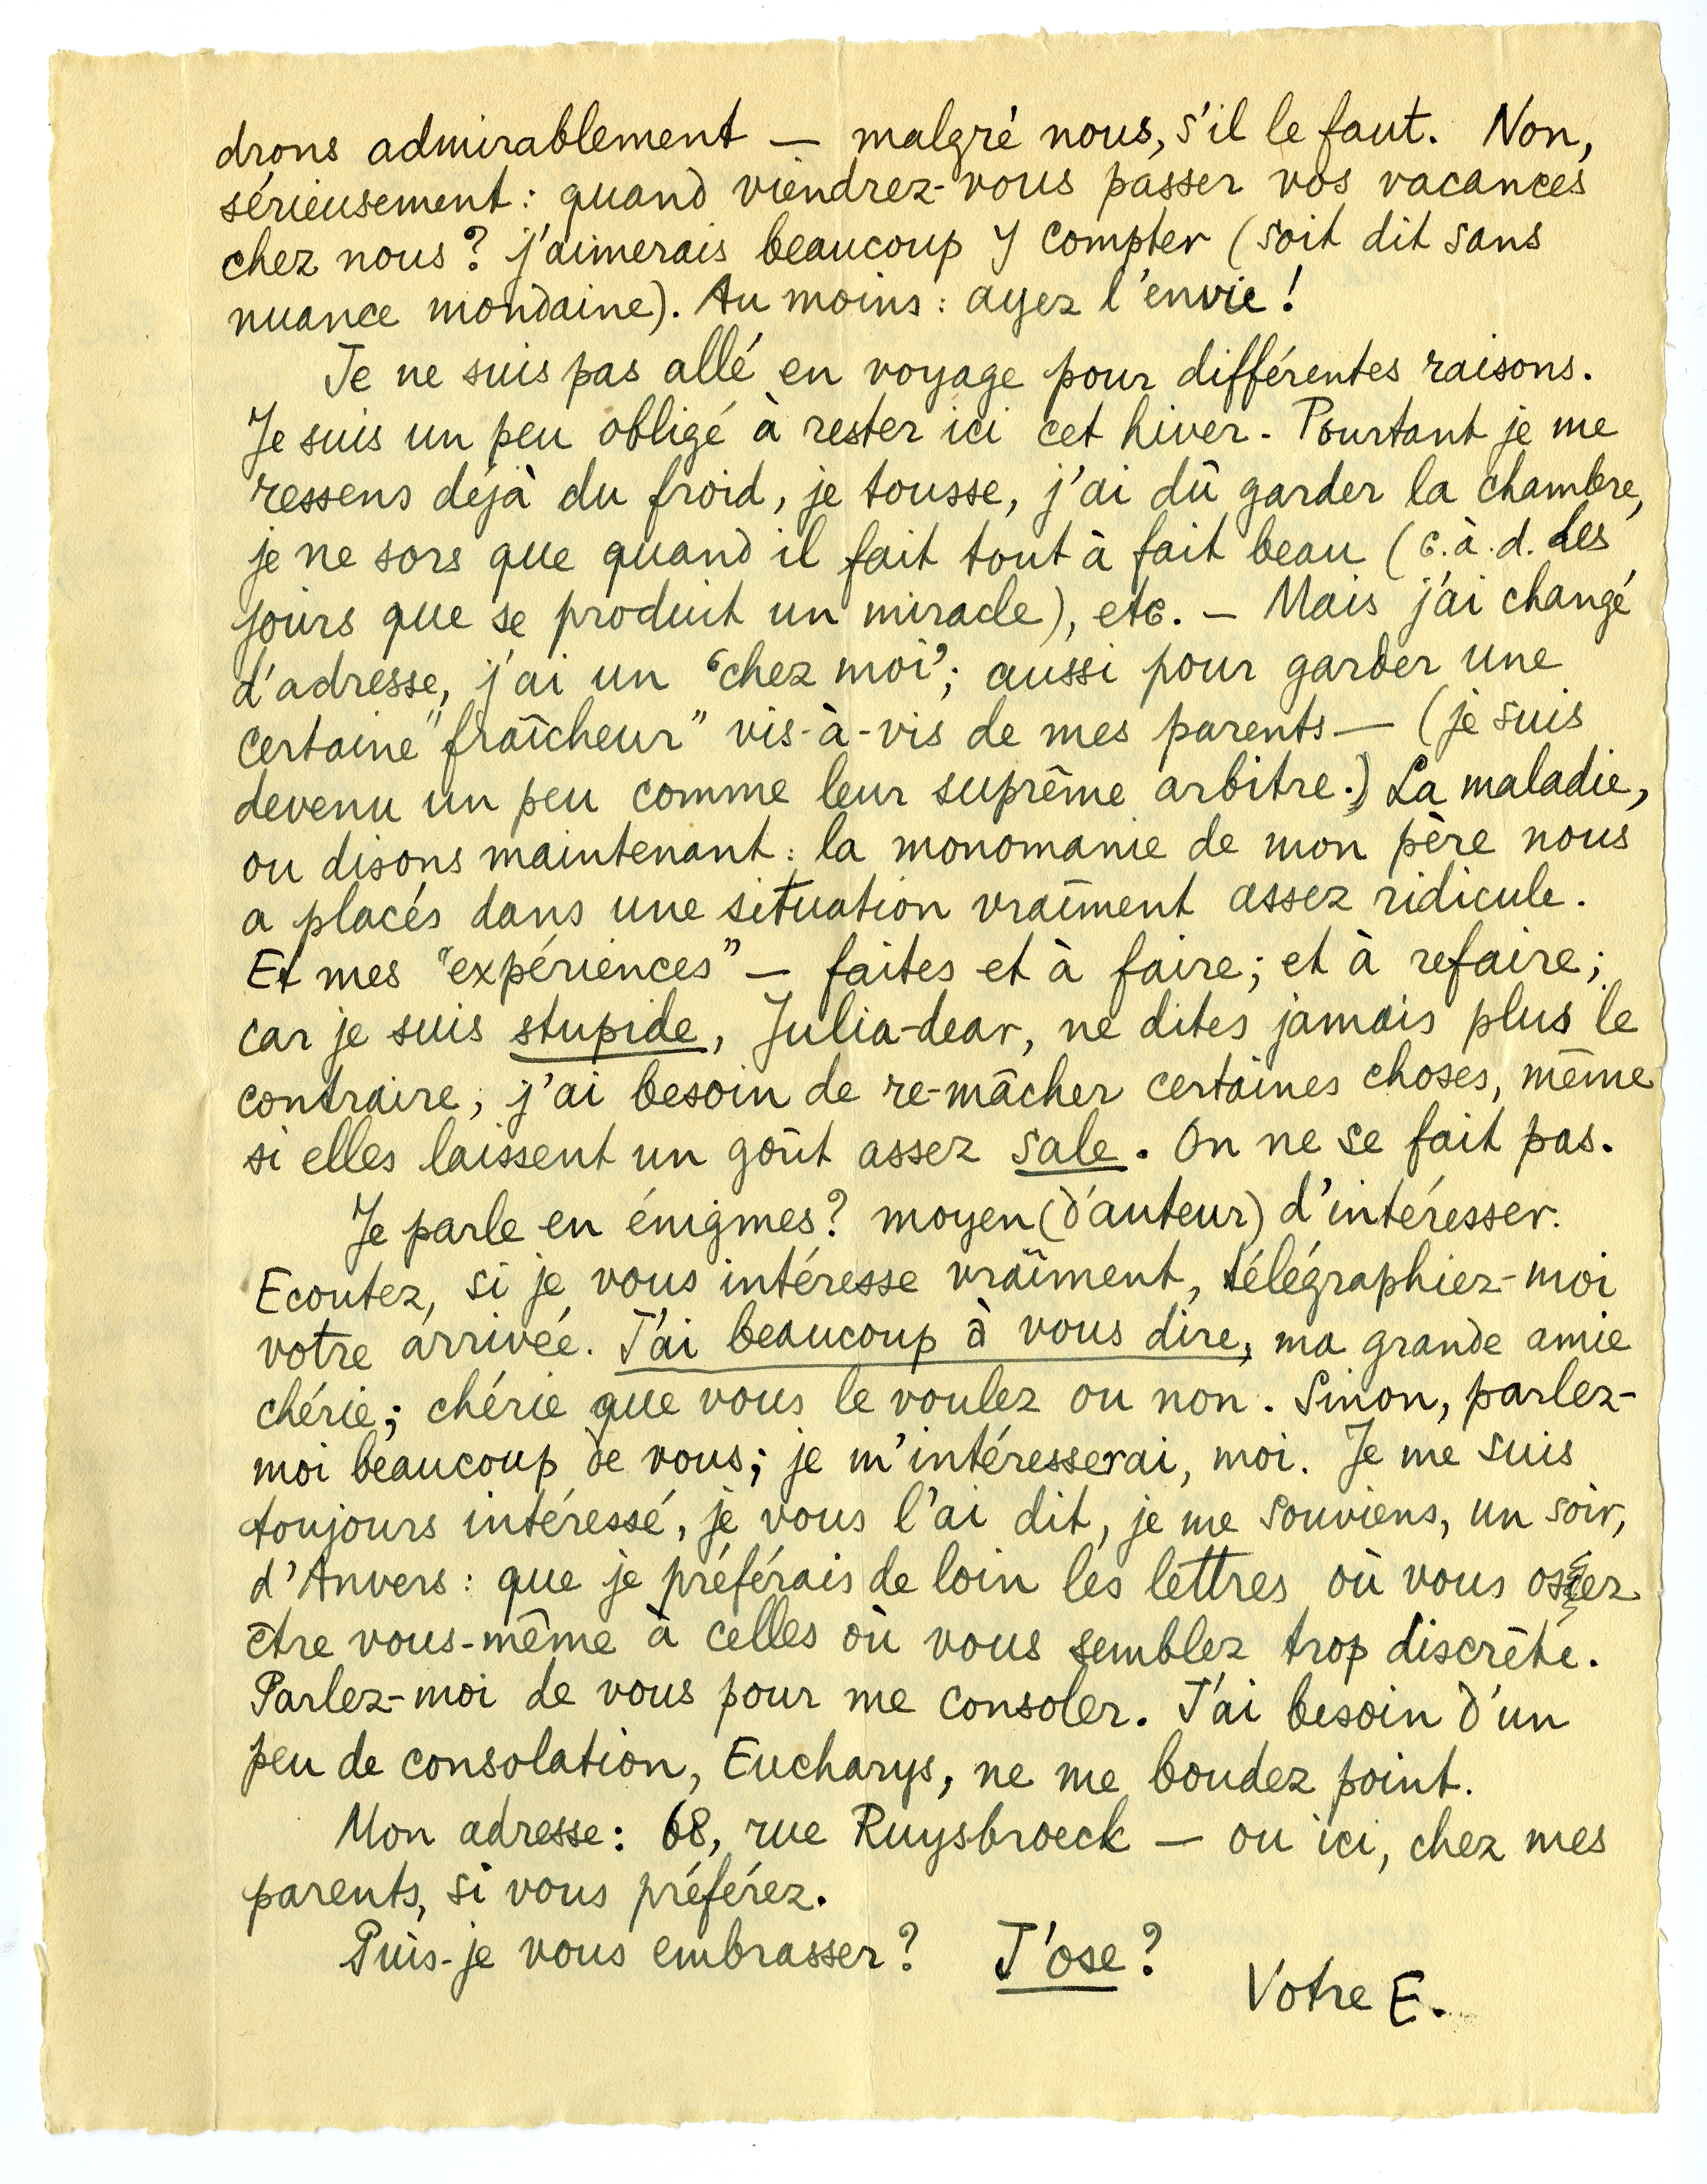 drons admirablement — malgré nous, s'il le faut. Non,
sérieusement : quand viendrez-vous passer vos vacances
chez nous ? j'aimerais beaucoup y compter (soit dit sans
nuance mondaine). Au moins : ayez l'envie !
Je ne suis pas allé en voyage pour différentes raisons.
Je suis un peu obligé à rester ici cet hiver. Pourtant je me
ressens déjà du froid, je tousse, j'ai dû garder la chambre,
je ne sors que quand il fait tout à fait beau (c.à.d. les
jours que se produit un miracle), etc. — Mais j'ai changé
d'adresse, j'ai un “chez moi”; aussi pour garder une
certaine “fraîcheur” vis-à-vis de mes parents — (je suis
devenu un peu comme leur suprême arbitre.) La maladie,
ou disons maintenant : la monomanie de mon père nous
a placés dans une situation vraîment assez ridicule.
Et mes “expériences” — faites et à faire; et à refaire;
car je suis stupide, Julia-dear, ne dites jamais plus le
contraire, j'ai besoin de re-mâcher certaines choses, même
si elles laissent un goût assez sale. On ne se fait pas.
Je parle en énigmes ? moyen (d'auteur) d'intéresser.
Ecoutez, si je vous intéresse vraîment, télégraphiez-moi
votre arrivée. J'ai beaucoup à vous dire, ma grande amie
chérie; chérie que vous le voulez ou non. Sinon, parlez-
moi beaucoup de vous; je m'intéresserai, moi. Je me suis
toujours intéressé, je vous l'ai dit, je me souviens, un soir,
d'Anvers : que je préférais de loin les lettres où vous osez
être vous-même à celles où vous semblez trop discrète.
Parlez-moi de vous pour me consoler. J'ai besoin d'un
peu de consolation, Eucharys, ne me boudez point.
Mon adresse : 68, rue Ruysbroeck — ou ici, chez mes
parents, si vous préférez.
Puis-je vous embrasser ? J'ose ?
Votre E.